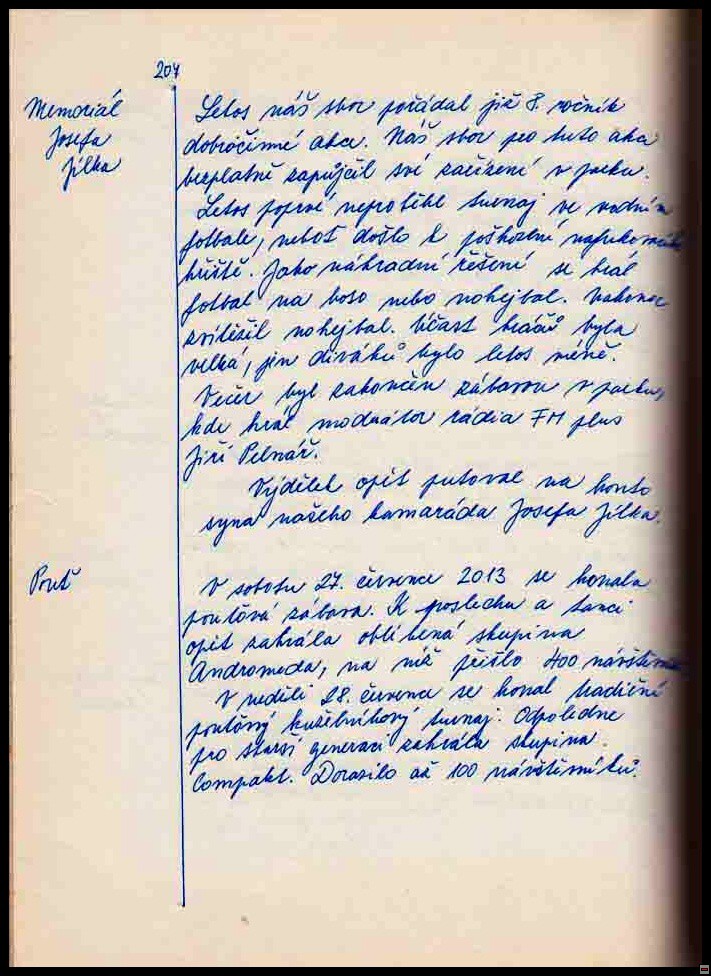 204
Memoriál
Josefa
Jílka
Letos náš sbor pořádal již 8. ročník
dobročinné akce. Náš sbor pro tuto akci
bezplatně zapůjčil své zařízení v parku.
Letos poprvé neproběhl turnaj ve vodním
fotbale, neboť došlo k poškození nafukovacího
hřiště. Jako náhradní řešení se hrál
fotbal na boso nebo nohejbal. Nakonec
zvítězil nohejbal. Účast hráčů byla
velká, jen diváků bylo letos méně.
Večer byl zakončen zábavou v parku,
kde hrál moderátor rádia FM plus
Jiří Pelnář.
Výdělek opět putoval na konto
syna našeho kamaráda Josefa Jílka.
Pouť
V sobotu 27. července 2013 se konala
pouťová zábava. K poslechu a tanci
opět zahrála oblíbená skupina
Andromeda, na níž přišlo 400 návštěvníků
V neděli 28. července se konal tradiční
pouťový kuželníkový turnaj. Odpoledne
pro starší generaci zahrála skupina
Compakt. Dorazilo až 100 návštěvníků.